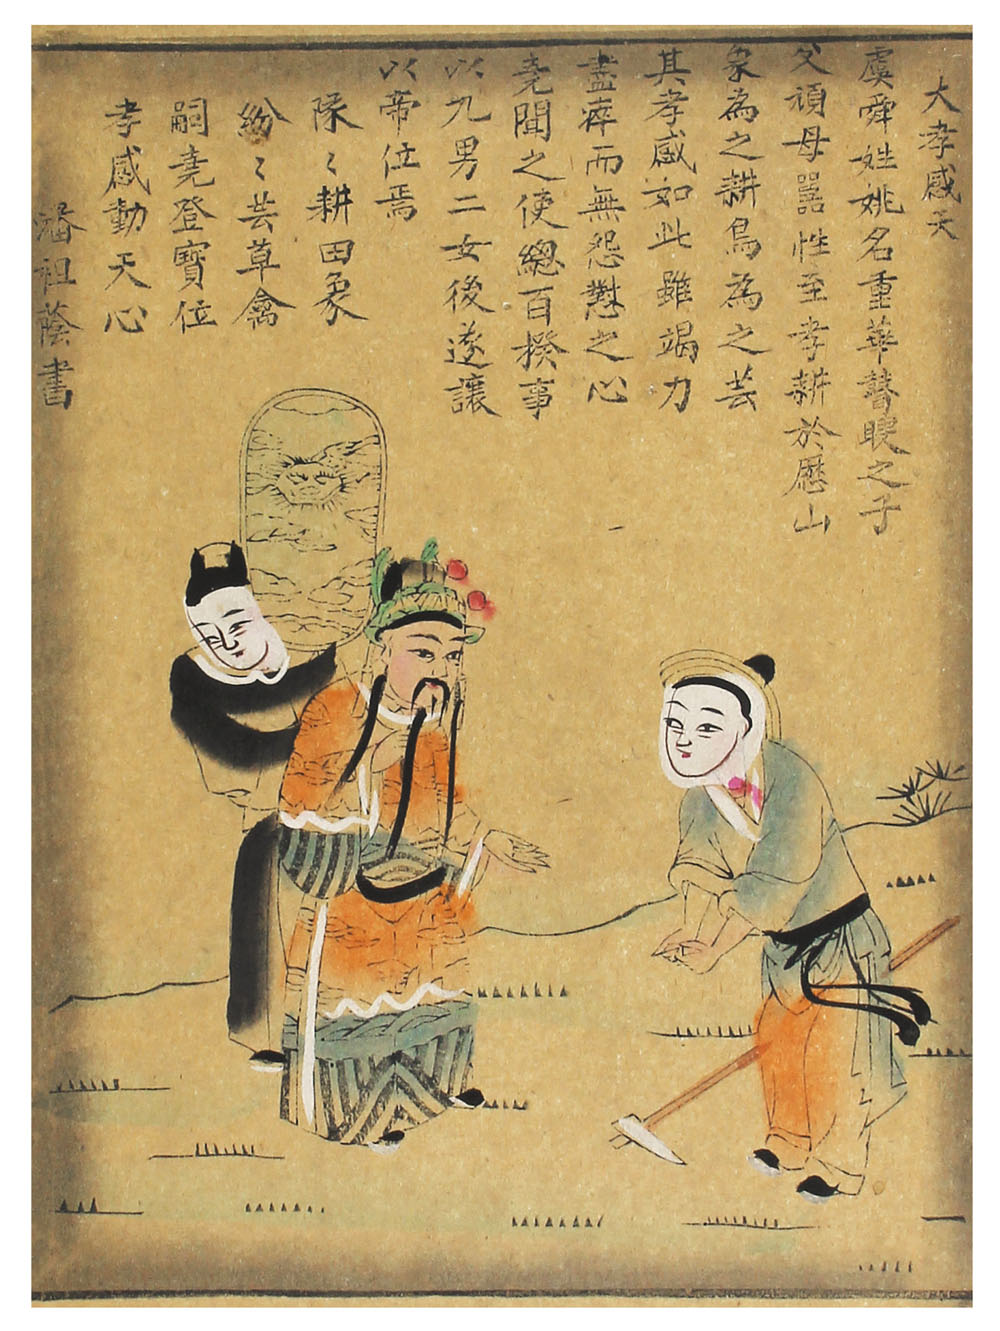 大孝感天
虞舜姓姚名重華瞽瞍之子
父頑母嚚性至孝耕於歷山
象為之耕鳥為之芸
其孝感如此雖竭力
盡瘁而無怨懟之心
堯聞之使總百揆事
以九男二女後遂讓
以帝位焉
隊〻耕田象
紛〻芸草禽
嗣堯登寶位
孝感動天心
潘祖蔭書